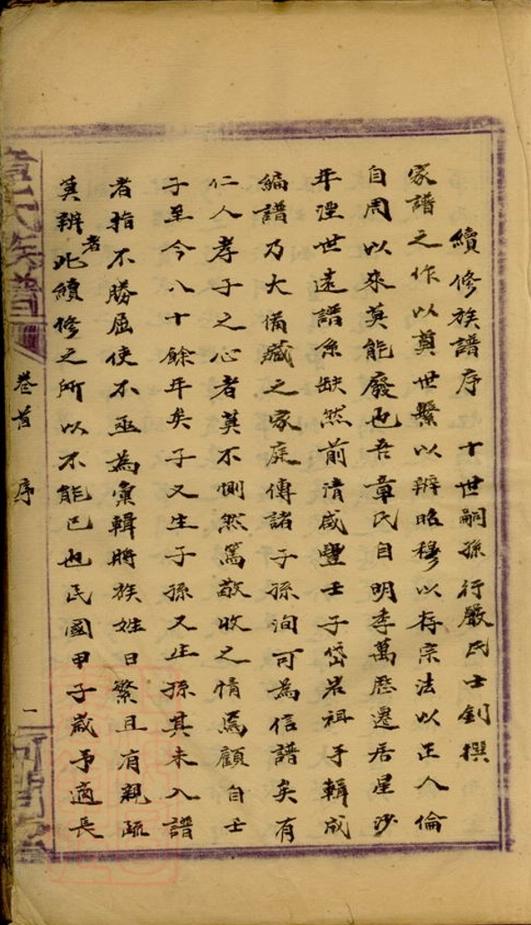 續修族譜序 十世嗣孫行嚴氏士釗撰
家譜之作以奠世繫以辨昭穆以存宗法以正人倫
自周以來莫能廢也吾章氏自明季萬歷遷居星沙
年湮世遠譜系缺然前清咸豐壬子岱岩祖手輯成
編譜乃大備藏之家庭傳諸子孫洵可為信譜矣有
仁人孝子之心者莫不惻然篤敬收之情焉顧自壬
子至今八十餘年矣子又生子孫又生孫其未入譜
者指不勝屈使不亟為彙輯將族姓日繁且有親疏
莫辨者此續修之所以不能已也民國甲子歲予適長
章氏族譜
卷首 序
一